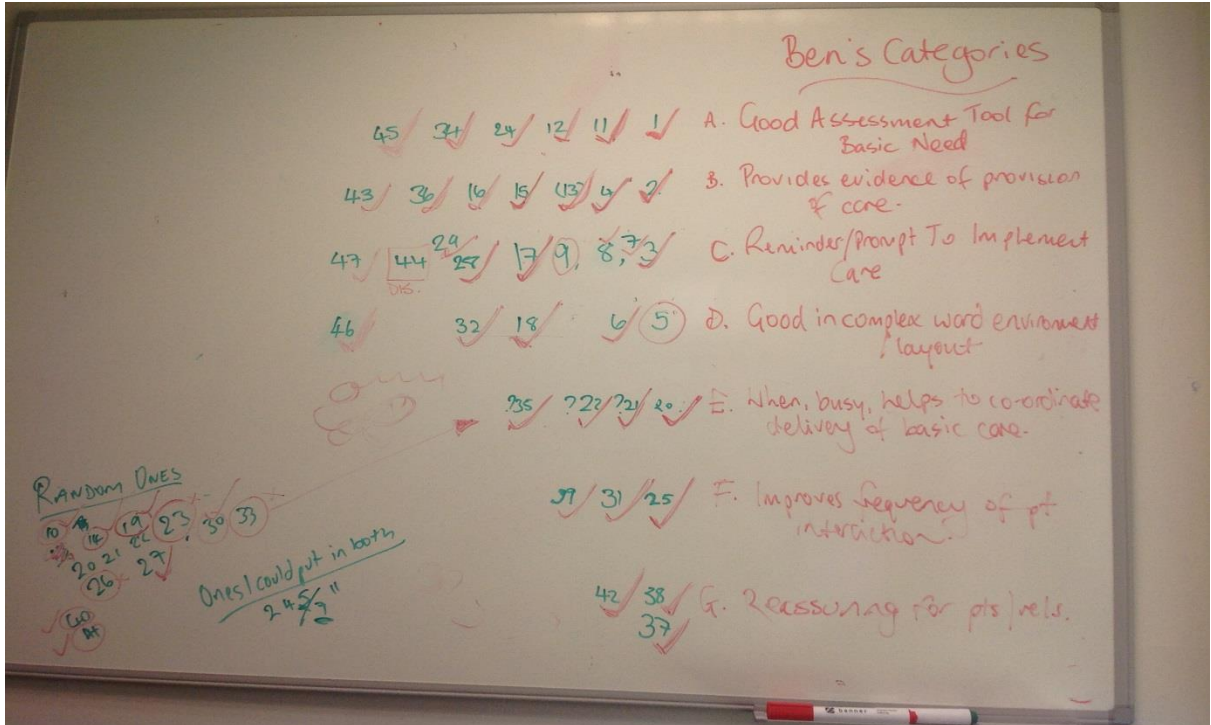 Ben's Categories
45 34 24 12 11 1 A. Good Assessment Tool for
Basic Need
43 36 16 15 13 4 2 B. Provides evidence of provision
of care.
47 44 29 28 17 9, 8, 7 3 C. Reminder/Prompt To Implement
Care
DIS.
46 32 18 6 5 D. Good in complex ward environment
/layout
?35 ?22 ?21 20 E. When, busy, helps to co-ordinate
delivery of basic care.
39 31 25 F. Improves frequency of pt
interaction.
42 38 G. Reassuring for pts/rels.
37
RANDOM ONES
10 14 19 23 30 33
20 21 22
26 27
40
Ones I could put in both